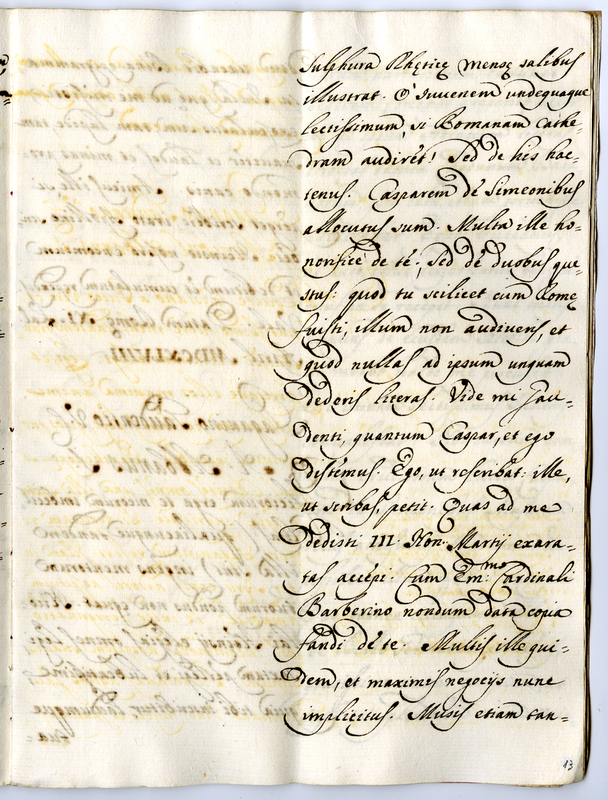 Sulphura Rhęticę mensę salibus
illustrat. O' Iuvenem undequaque
lectissimum, si Romanam Cathe-
dram audiret! Sed de his hac-
tenus. Casparem de Simeonibus
allocutus sum. Multa ille ho-
norificè de te, sed de duobus que-
stus: quod tu scilicet cum Romę
fuisti, illum non audiveris, et
quod nullas ad ipsum unquam
dederis literas. Vide mi Gau-
denti, quantum Caspar, et ego
distemus. Ego, ut rescribat: ille,
ut scribas, petit. Quas ad me
dedisti III. Non. Martij exara-
tas accepi. Cum Em:mo Cardinali
Barberino nondum data copia
fandi de te. Multis ille qui-
dem, et maximis negocijs nunc
implicitus. Musis etiam tan-
13